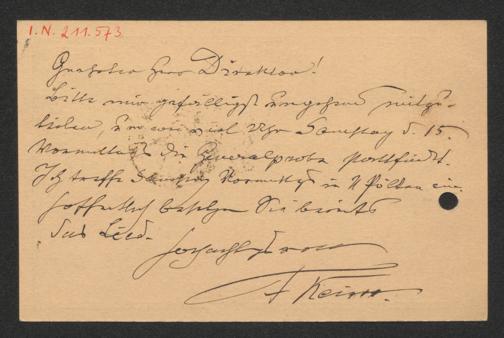 I.N. 211.573
Geehrter Herr Direktor!
Bitte mir gefälligst umgehend mitzu-
teilen, um wie viel Uhr Samstag d. 15.
Vormittags die Generalprobe stattfindet.
Ich treffe Samstag Vormittgs in St Pölten ein.
Hoffentlich besitzen Sie bereits
das Lied.
Hochachtungsvoll